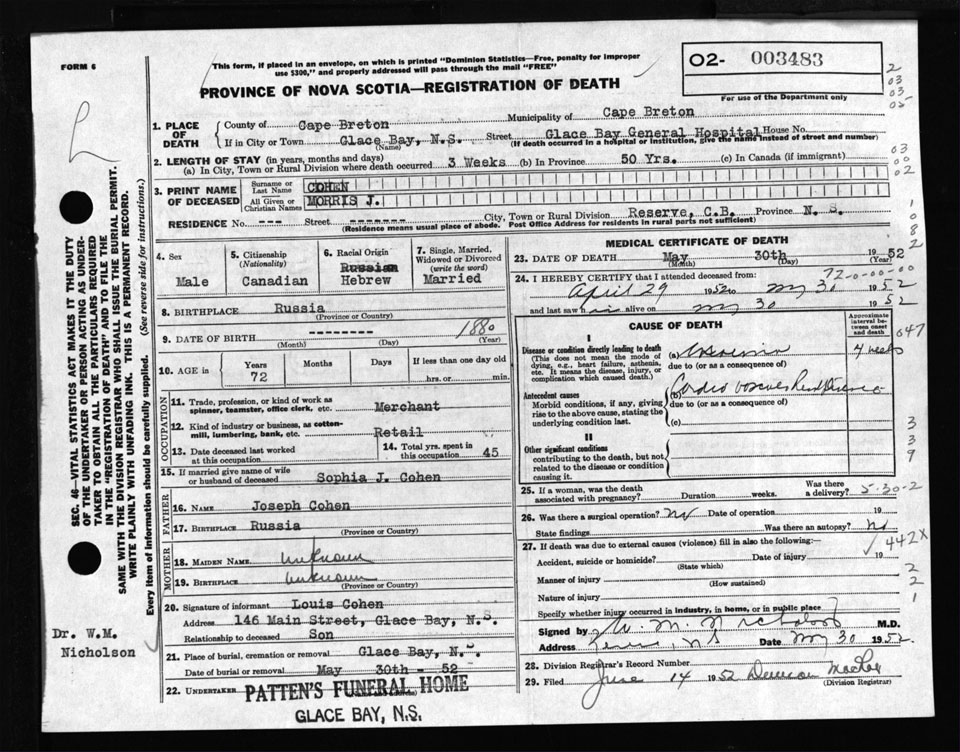 FORM 6
This form, if placed in an envelope, on which is printed "Dominion Statistics—Free, penalty for improper
use $300," and properly addressed will pass through the mail "FREE"
PROVINCE OF NOVA SCOTIA—REGISTRATION OF DEATH
O2- 003483
For use of the Department only
2
03
03
05
03
00
02
1
0
8
2
1. PLACE OF DEATH
County of Cape Breton Municipality of Cape Breton
If in City or Town Glace Bay, N.S. Street Glace Bay General Hospital House No.
(Name) (If death occurred in a hospital or institution, give the name instead of street and number)
2. LENGTH OF STAY (in years, months and days)
(a) In City, Town or Rural Division where death occurred 3 Weeks (b) In Province 50 Yrs. (c) In Canada (if immigrant)
3. PRINT NAME OF DECEASED
Surname or Last Name COHEN
All Given or Christian Names MORRIS J.
RESIDENCE No. --- Street ------- City, Town or Rural Division Reserve, C.B. Province N. S.
(Residence means usual place of abode. Post Office Address for residents in rural parts not sufficient)
4. Sex
Male
5. Citizenship
(Nationality)
Canadian
6. Racial Origin
Russian
Hebrew
7. Single, Married,
Widowed or Divorced
(write the word)
Married
8. BIRTHPLACE Russia
(Province or Country)
9. DATE OF BIRTH -------- 1880
(Month) (Day) (Year)
10. AGE in
Years
72
Months
Days
If less than one day old
hrs. or min.
OCCUPATION
11. Trade, profession, or kind of work as
spinner, teamster, office clerk, etc. Merchant
12. Kind of industry or business, as cotton-
mill, lumbering, bank, etc. Retail
13. Date deceased last worked
at this occupation
14. Total yrs. spent in
this occupation 45
15. If married give name of wife
or husband of deceased Sophia J. Cohen
FATHER
16. Name Joseph Cohen
17. Birthplace Russia
(Province or Country)
MOTHER
18. MAIDEN NAME unknown
19. BIRTHPLACE unknown
(Province or Country)
20. Signature of informant Louis Cohen
Address 146 Main Street, Glace Bay, N.S.
Relationship to deceased Son
21. Place of burial, cremation or removal Glace Bay, N.S.
Date of burial or removal May 30th - 52
22. UNDERTAKER PATTEN'S FUNERAL HOME
GLACE BAY, N.S.
MEDICAL CERTIFICATE OF DEATH
23. DATE OF DEATH May 30th 1952
(Month) (Day) (Year)
24. I HEREBY CERTIFY that I attended deceased from: 72-0-00-00
April 29 1952 to May 30 1952
and last saw him alive on May 30 1952
CAUSE OF DEATH
Approximate
interval be-
tween onset
and death
647
I
Disease or condition directly leading to death
(This does not mean the mode of
dying, e.g., heart failure, asthenia,
etc. It means the disease, injury, or
complication which caused death.)
(a) Uraemia 4 weeks
due to (or as a consequence of)
Antecedent causes
Morbid conditions, if any, giving
rise to the above cause, stating the
underlying condition last.
(b) Cardio Renal Disease
due to (or as a consequence of)
(c)
II
Other significant conditions
contributing to the death, but not
related to the disease or condition
causing it.
3
3
9
25. If a woman, was the death
associated with pregnancy? Duration weeks. Was there
a delivery? 5-30-2
26. Was there a surgical operation? No Date of operation 19
State findings Was there an autopsy? No
27. If death was due to external causes (violence) fill in also the following:— 442X
Accident, suicide or homicide? Date of injury 19
(State which)
Manner of injury
(How sustained)
Nature of injury
Specify whether injury occurred in industry, in home, or in public place
2
2
1
Signed by W. M. Nicholson M.D.
Address N S Date May 30 1952
28. Division Registrar's Record Number
29. Filed June 14 1952
(Division Registrar)
SEC. 46—VITAL STATISTICS ACT MAKES IT THE DUTY
OF THE UNDERTAKER OR PERSON ACTING AS UNDER-
TAKER TO OBTAIN ALL THE PARTICULARS REQUIRED
IN THE "REGISTRATION OF DEATH" AND TO FILE THE
SAME WITH THE DIVISION REGISTRAR WHO SHALL ISSUE THE BURIAL PERMIT.
WRITE PLAINLY WITH UNFADING INK. THIS IS A PERMANENT RECORD.
Every item of information should be carefully supplied. (See reverse side for instructions.)
Dr. W.M.
Nicholson